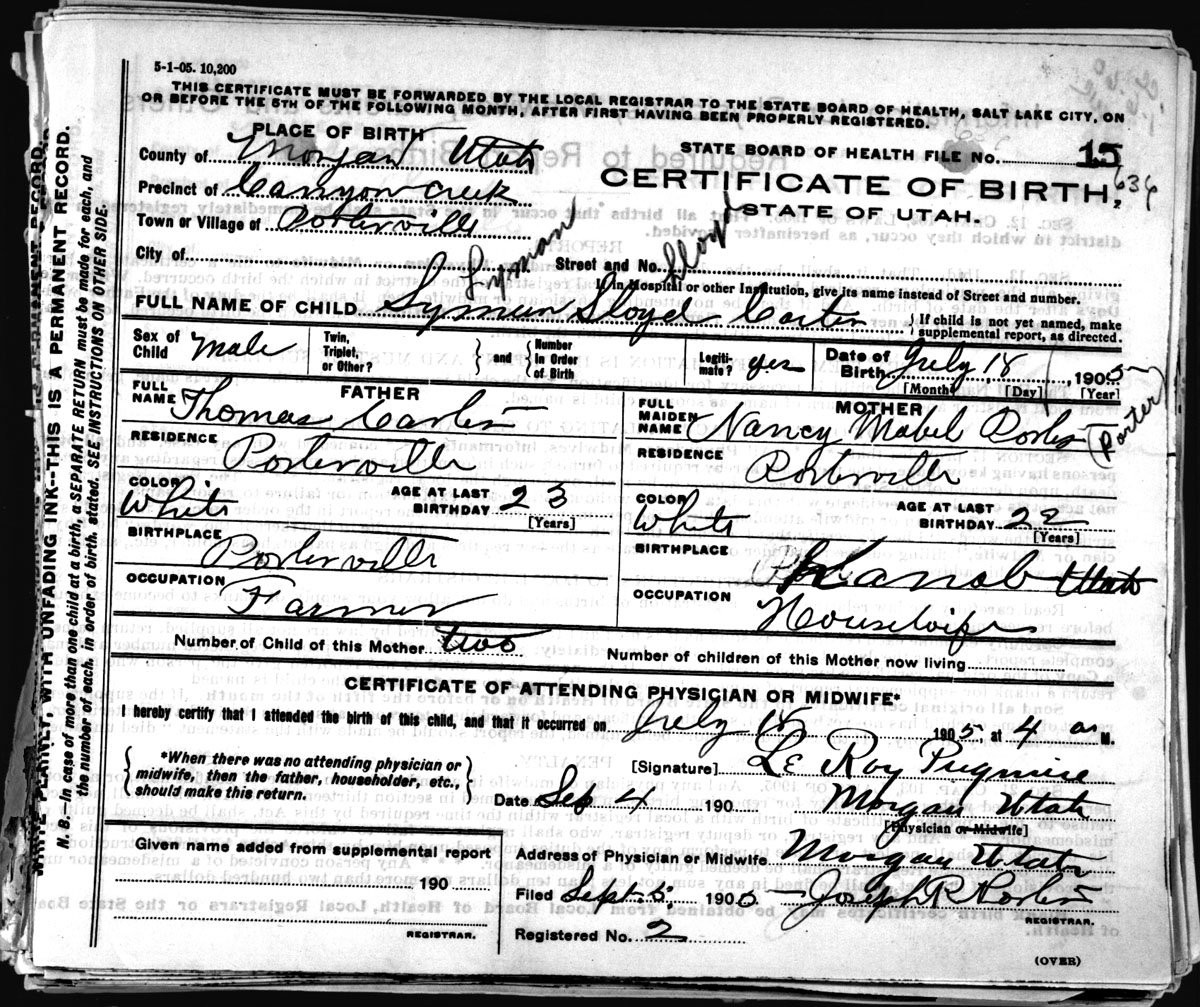 5-1-05. 10,200
THIS CERTIFICATE MUST BE FORWARDED BY THE LOCAL REGISTRAR TO THE STATE BOARD OF HEALTH, SALT LAKE CITY, ON
OR BEFORE THE 5TH OF THE FOLLOWING MONTH, AFTER FIRST HAVING BEEN PROPERLY REGISTERED.
PLACE OF BIRTH
STATE BOARD OF HEALTH FILE No. 15
636
County of Morgan Utah
CERTIFICATE OF BIRTH,
Precinct of Canyon Creek
STATE OF UTAH.
Town or Village of Porterville
City of
Street and No.
Lyman Lloyd
If in Hospital or other Institution, give its name instead of Street and number.
FULL NAME OF CHILD Lyman Lloyd Carter
If child is not yet named, make
supplemental report, as directed.
Sex of Child Male
Twin, Triplet, or Other?
and
Number in Order of Birth
Legiti-mate? yes
Date of Birth July 18, 1905
[Month] [Day] [Year]
FATHER
FULL NAME Thomas Carter
RESIDENCE
Porterville
COLOR White
AGE AT LAST BIRTHDAY 23
[Years]
BIRTHPLACE
Porterville
OCCUPATION
Farmer
MOTHER
FULL MAIDEN NAME Nancy Mabel Porter
(Porter)
RESIDENCE
Porterville
COLOR White
AGE AT LAST BIRTHDAY 22
[Years]
BIRTHPLACE
Kanab Utah
OCCUPATION
Housewife
Number of Child of this Mother two
Number of children of this Mother now living
CERTIFICATE OF ATTENDING PHYSICIAN OR MIDWIFE*
I hereby certify that I attended the birth of this child, and that it occurred on July 18 1905 at 4 a M.
*When there was no attending physician or
midwife, then the father, householder, etc.,
should make this return.
[Signature] Le Roy Pugmire
Date Sep 4 190 Morgan Utah
[Physician or Midwife]
Given name added from supplemental report
190
REGISTRAR.
Address of Physician or Midwife Morgan Utah
Filed Sept. 5, 1905 Joseph R Porter
REGISTRAR.
Registered No. 2
(OVER)
WRITE PLAINLY, WITH UNFADING INK--THIS IS A PERMANENT RECORD.
N. B.--In case of more than one child at a birth, a SEPARATE RETURN must be made for each, and
the number of each, in order of birth, stated. SEE INSTRUCTIONS ON OTHER SIDE.